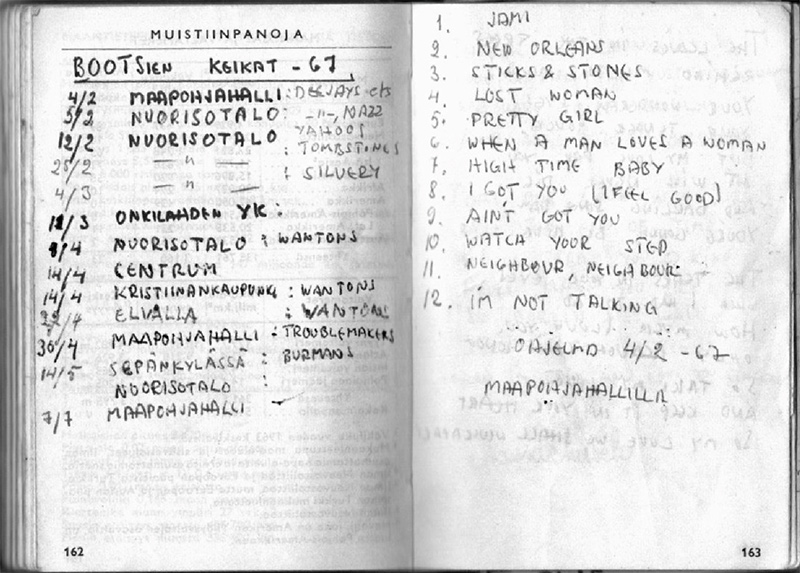 MUISTIINPANOJA
BOOTSien KEIKAT - 67
4/2 MAAPOHJAHALLI : DEEJAYS etc
5/2 NUORISOTALO : -"-, MAZZ
12/2 NUORISOTALO YAHOOS
25/2 — " — : TOMBSTONES
4/3 — " — : SILVERY
11/3 ONKILAHDEN YK :
9/4 NUORISOTALO : WANTONS
14/4 CENTRUM
14/4 KRISTIINANKAUPUNKI : WANTONS
22/4 ELVALLA : WANTONS
30/4 MAAPOHJAHALLI : TROUBLEMAKERS
14/5 SEPÄNKYLÄSSÄ : BURMANS
NUORISOTALO :
7/7 MAAPOHJAHALLI
162
1. JAMI
2. NEW ORLEANS
3. STICKS & STONES
4. LOST WOMAN
5. PRETTY GIRL
6. WHEN A MAN LOVES A WOMAN
7. HIGH TIME BABY
8. I GOT YOU (I FEEL GOOD)
9. AIN'T GOT YOU
10. WATCH YOUR STEP
11. NEIGHBOUR, NEIGHBOUR
12. I'M NOT TALKING
OHJELMA 4/2 - 67
MAAPOHJAHALLILLA
163